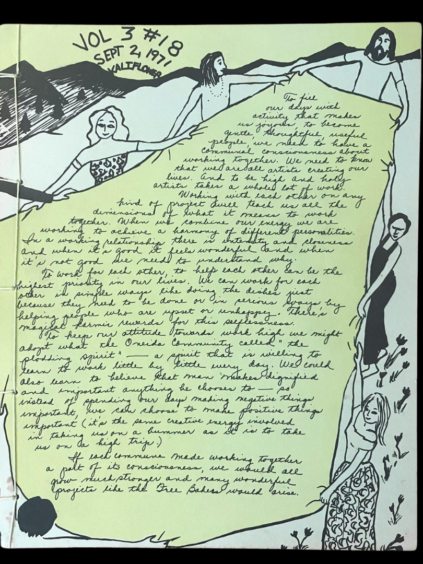 VOL 3 #18
SEPT 2, 1971
KALIFLOWER
To fill
our days with
activity that makes
us joyous, to become
gentle, thoughtful, useful
people, we need to have a
communal consciousness about
working together. We need to know
that we are all artists creating our
lives. And to be high and holy
artists takes a whole lot of work.
Working with each other on any
kind of project will teach us all the
dimensions of what it means to work
together. When we combine our energy we are
working to achieve a harmony of different personalities.
In a working relationship there is intensity and closeness
and when it's good it feels wonderful. And when
it's not good we need to understand why.
To work for each other, to help each other can be the
highest priority in our lives. We can work for each
other in simple ways like doing the dishes just
because they need to be done or in serious ways by
helping people who are upset or unhappy. There's
magical karmic rewards for this selflessness.
To keep our attitude towards work high we might
adopt what the Oneida Community called "the
plodding spirit" — a spirit that is willing to
learn to work little by little every day. We could
also learn to believe that man makes magnified
and important anything he chooses to — so
instead of spending our days making negative things
important, we can choose to make positive things
important (it's the same creative energy involved
in taking us on a bummer as it is to take
us on a high trip.)
If each commune made working together
a part of its consciousness, we would all
grow much stronger and many wonderful
projects like the Free Bakery would arise.